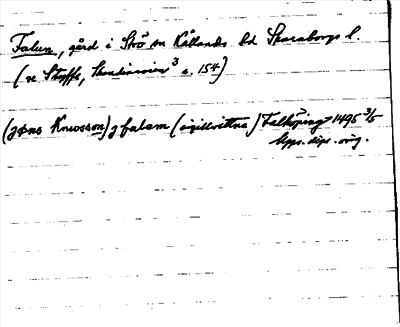 Falun, gård i Strö sn Kållands hd Skaraborgs l.
(se Styffe, Skandinavien³ s. 154)
(jøns Knwsson) j falem (sigillvittne) Falköping 1495 3/5
Upps. dipl. orig.